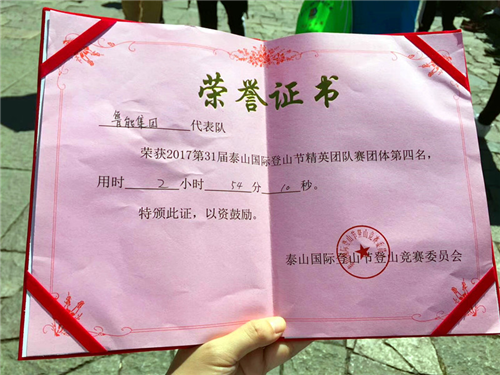 荣誉证书
鲁能集团 代表队
荣获2017第31届泰山国际登山节精英团队赛团体第四名,
用时 2 小时 54 分 10 秒。
特颁此证,以资鼓励。
泰山国际登山节登山竞赛委员会